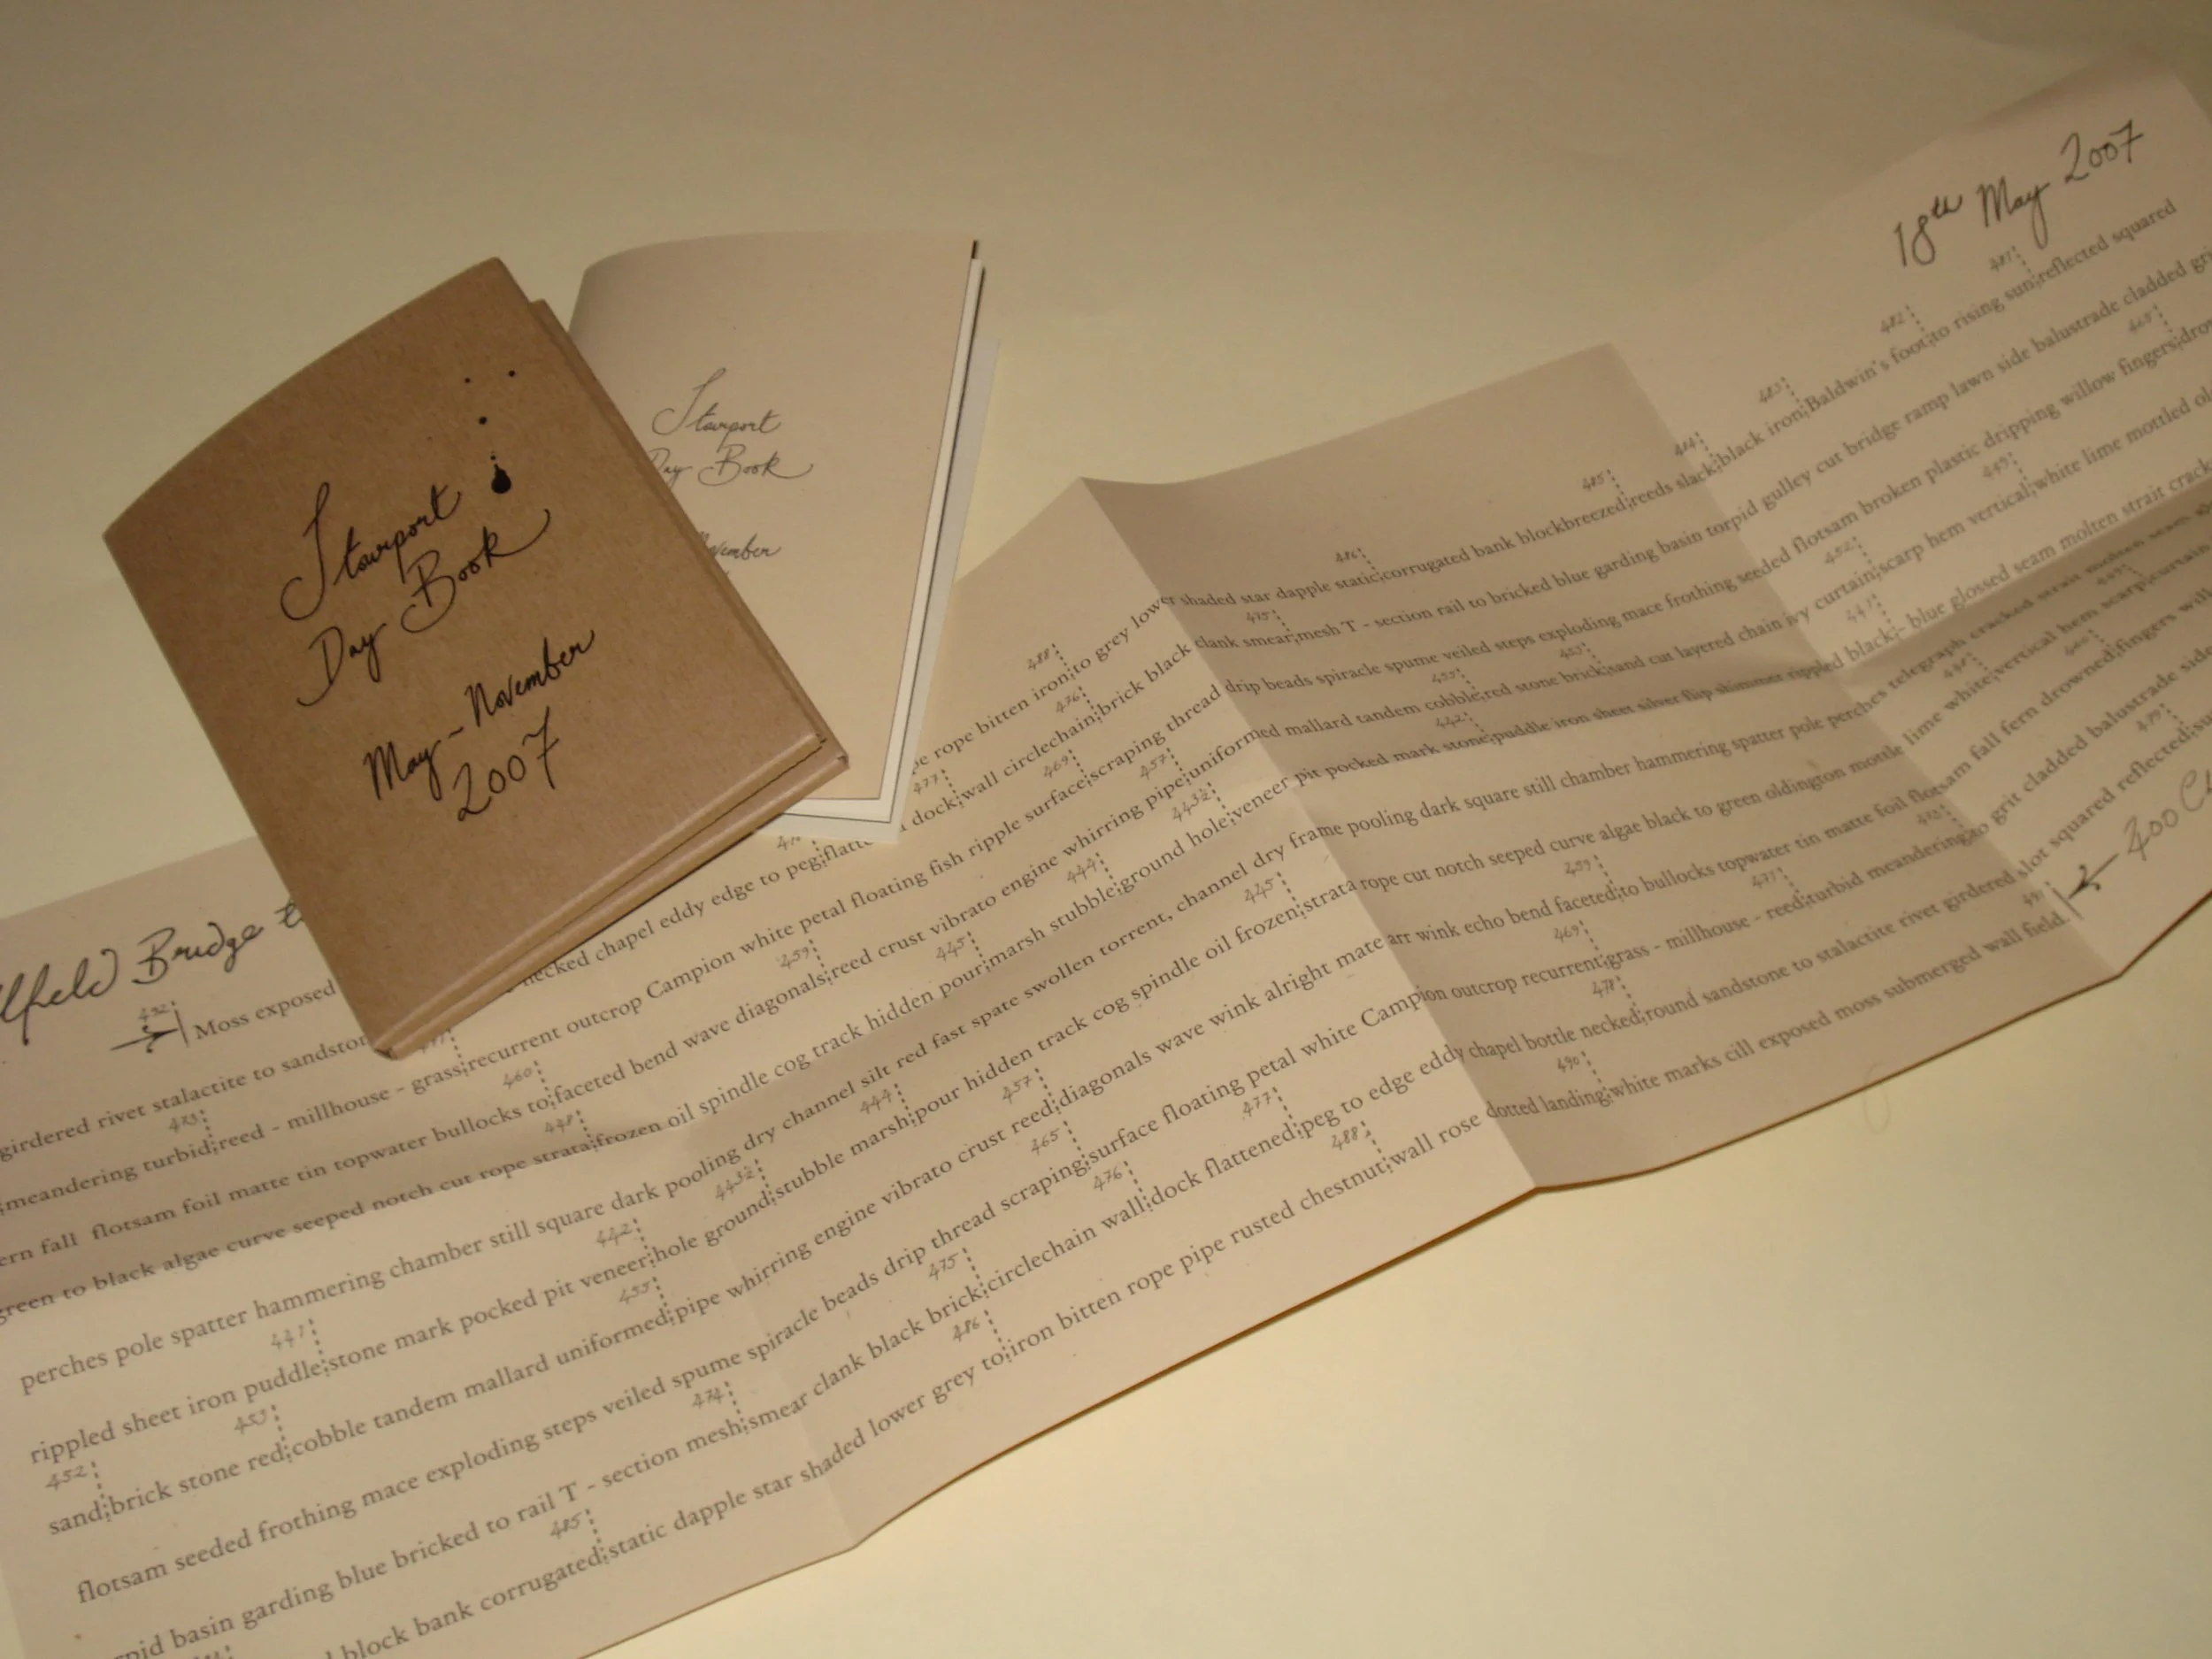 Stourport
Day Book
May - November
2007
Stourport
Day Book
18th May 2007
Bridge
492
Moss exposed
rope bitten iron to grey lower shaded star dapple static corrugated bank block breezed reeds slack black iron Baldwin's foot to rising sun reflected squared
488 486 485 484 483 482 481
girdered rivet stalactite to sandstone
necked chapel eddy edge to peg
dock wall circlechain brick black clank smear mesh T - section rail to bricked blue garding basin torpid gulley cut bridge ramp lawn side balustrade cladded
477 476 475
meandering turbid reed - millhouse - grass recurrent outcrop Campion white petal floating fish ripple surface scraping thread drip beads spiracle spume veiled steps exploding mace frothing seeded flotsam broken plastic dripping willow fingers
469 465
fall flotsam foil matte tin topwater bullocks to faceted bend wave diagonals reed crust vibrato engine whirring pipe uniformed mallard tandem cobble red stone brick sand cut layered chain ivy curtain scarp hem vertical white lime mottled
460 459 457 455 453 452 449
green to black algae curve seeped notch cut rope strata frozen oil spindle cog track hidden pour marsh stubble ground hole veneer pit pocked mark stone puddle iron sheet silver flip shimmer rippled black - blue glossed seam molten strait
448 445 444 443½ 442 441
perches pole spatter hammering chamber still square dark pooling dry channel silt red fast spate swollen torrent, channel dry frame pooling dark square still chamber hammering spatter pole perches telegraph cracked strait molten seam
441 442 443½ 444 445
rippled sheet iron puddle stone mark pocked pit veneer hole ground stubble marsh pour hidden track cog spindle oil frozen strata rope cut notch seeped curve algae black to green oldington mottle lime white vertical hem scarp curtain
452 453 455 457 459 460
sand brick stone red cobble tandem mallard uniformed pipe whirring engine vibrato crust reed diagonals wave wink alright mate arr wink echo bend faceted to bullocks topwater tin matte foil flotsam fall fern drowned fingers
465 469 471
flotsam seeded frothing mace exploding steps veiled spume spiracle beads drip thread scraping surface floating petal white Campion outcrop recurrent grass - millhouse - reed turbid meandering to grit cladded balustrade side
474 475 476 477 478
basin garding blue bricked to rail T - section mesh smear clank black brick circlechain wall dock flattened peg to edge eddy chapel bottle necked round sandstone to stalactite rivet girdered slot squared reflected
485 486 488 490
block bank corrugated static dapple star shaded lower grey to iron bitten rope pipe rusted chestnut wall rose dotted landing white marks cill exposed moss submerged wall field.